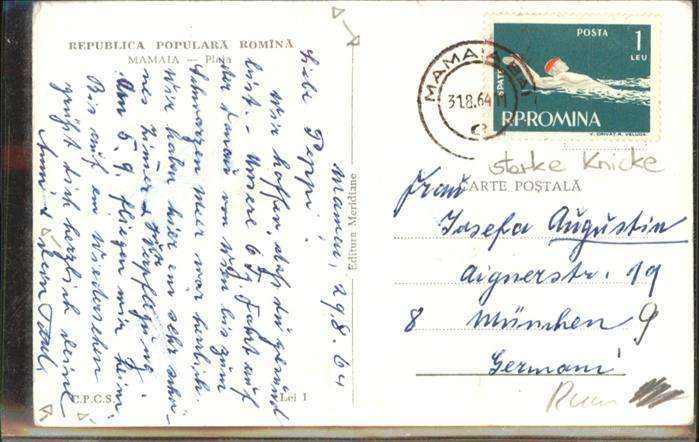 REPUBLICA POPULARĂ ROMÎNĂ
MAMAIA — Plaja
Mamaia, 29.8.64
Liebe Peppi!
Wir hoffen, daß du gesund
bist. – Unsere 6 T. Fahrt auf
der Donau von Wien bis zum
Schwarzen Meer war herrlich.
Wir haben hier ein sehr schö-
nes Zimmer & Verpflegung.
Am 5.9. fliegen wir heim.
Bis auf ein Wiedersehen
grüßt dich herzlich deine
Anni &
C.P.C.S.
Lei 1
Editura Meridiane
POSTA
1
LEU
SPATE
RPROMINA
MAMAIA
31.8.64
starke Knicke
CARTE POŞTALĂ
Frau
Josefa Augustin
Aignerstr. 19
8 München 9
Germani